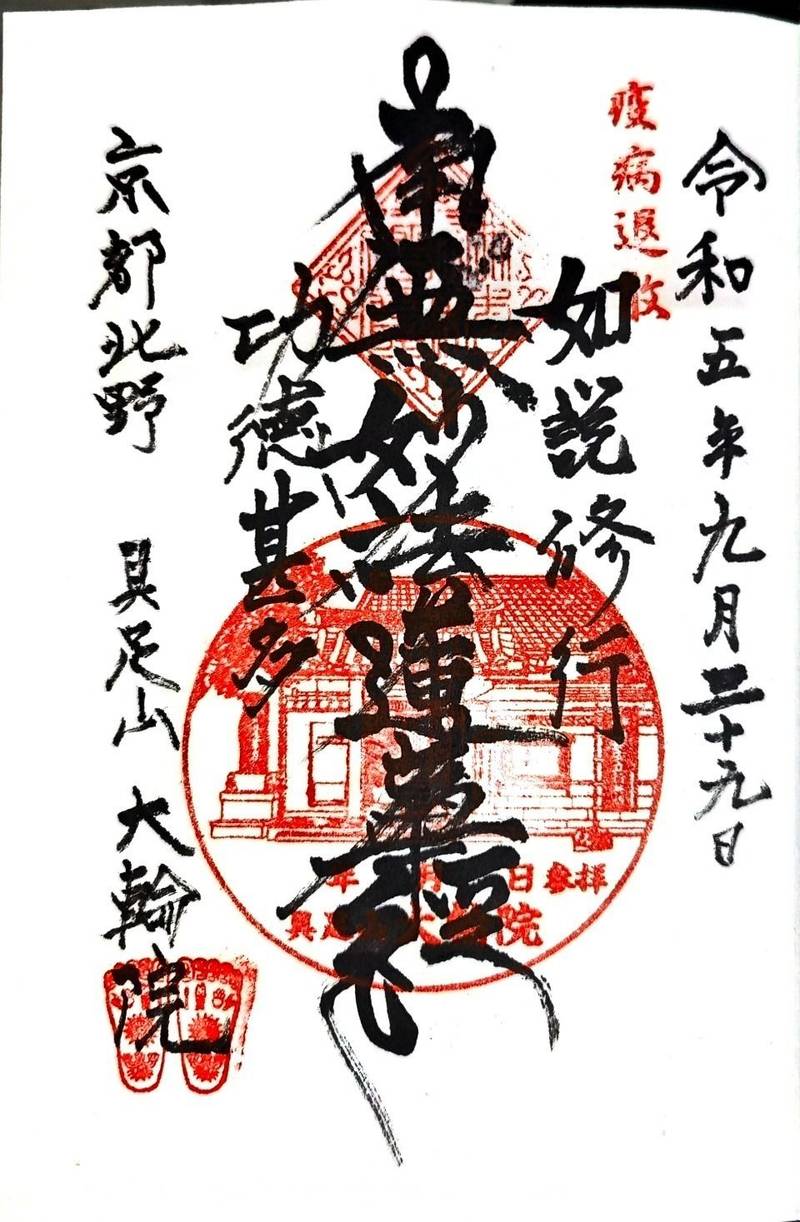 令和五年九月二十九日
疫病退散
如説修行
南無妙法蓮華経
功徳甚多
京都北野 具足山 大輪院
年 月 日参拝
院